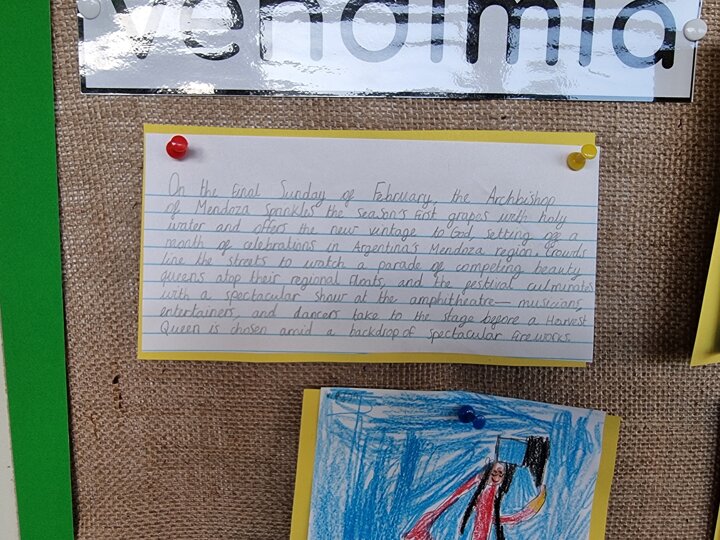 vendimia
On the final Sunday of February, the Archbishop
of Mendoza sprinkles the season's first grapes with holy
water and offers the new vintage to God, setting off a
month of celebrations in Argentina's Mendoza region. Crowds
line the streets to watch a parade of competing beauty
queens atop their regional floats, and the festival culminates
with a spectacular show at the amphitheatre— musicians,
entertainers, and dancers take to the stage before a Harvest
Queen is chosen amid a backdrop of spectacular fireworks.